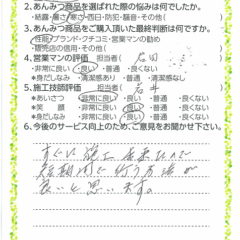 2.あんみつ商品を選ばれた際の悩みは何でしたか。
・結露・暑さ・寒さ・西日・防犯・騒音・その他(
3.あんみつ商品をご購入頂いた最終判断は何ですか。
・性能・ブランド・クチコミ・営業マンの勧め
・販売店の信用・その他(
4.営業マンの評価 担当者(石田
・非常に良い ・良い ・普通 ・良くない
★身だしなみ ・清潔感あり ・普通 ・清潔感なし
5.施工技師評価 担当者(
★あいさつ ・非常に良い ・良い ・普通 ・良くない
★笑 顔 ・非常に良い ・良い ・普通 ・良くない
★身だしなみ ・非常に良い ・良い ・普通 ・良くない
6.今後のサービス向上のため、ご意見をお聞かせ下さい。
すぐに施工出来るので
短期間に行う方法が
良いと思います。